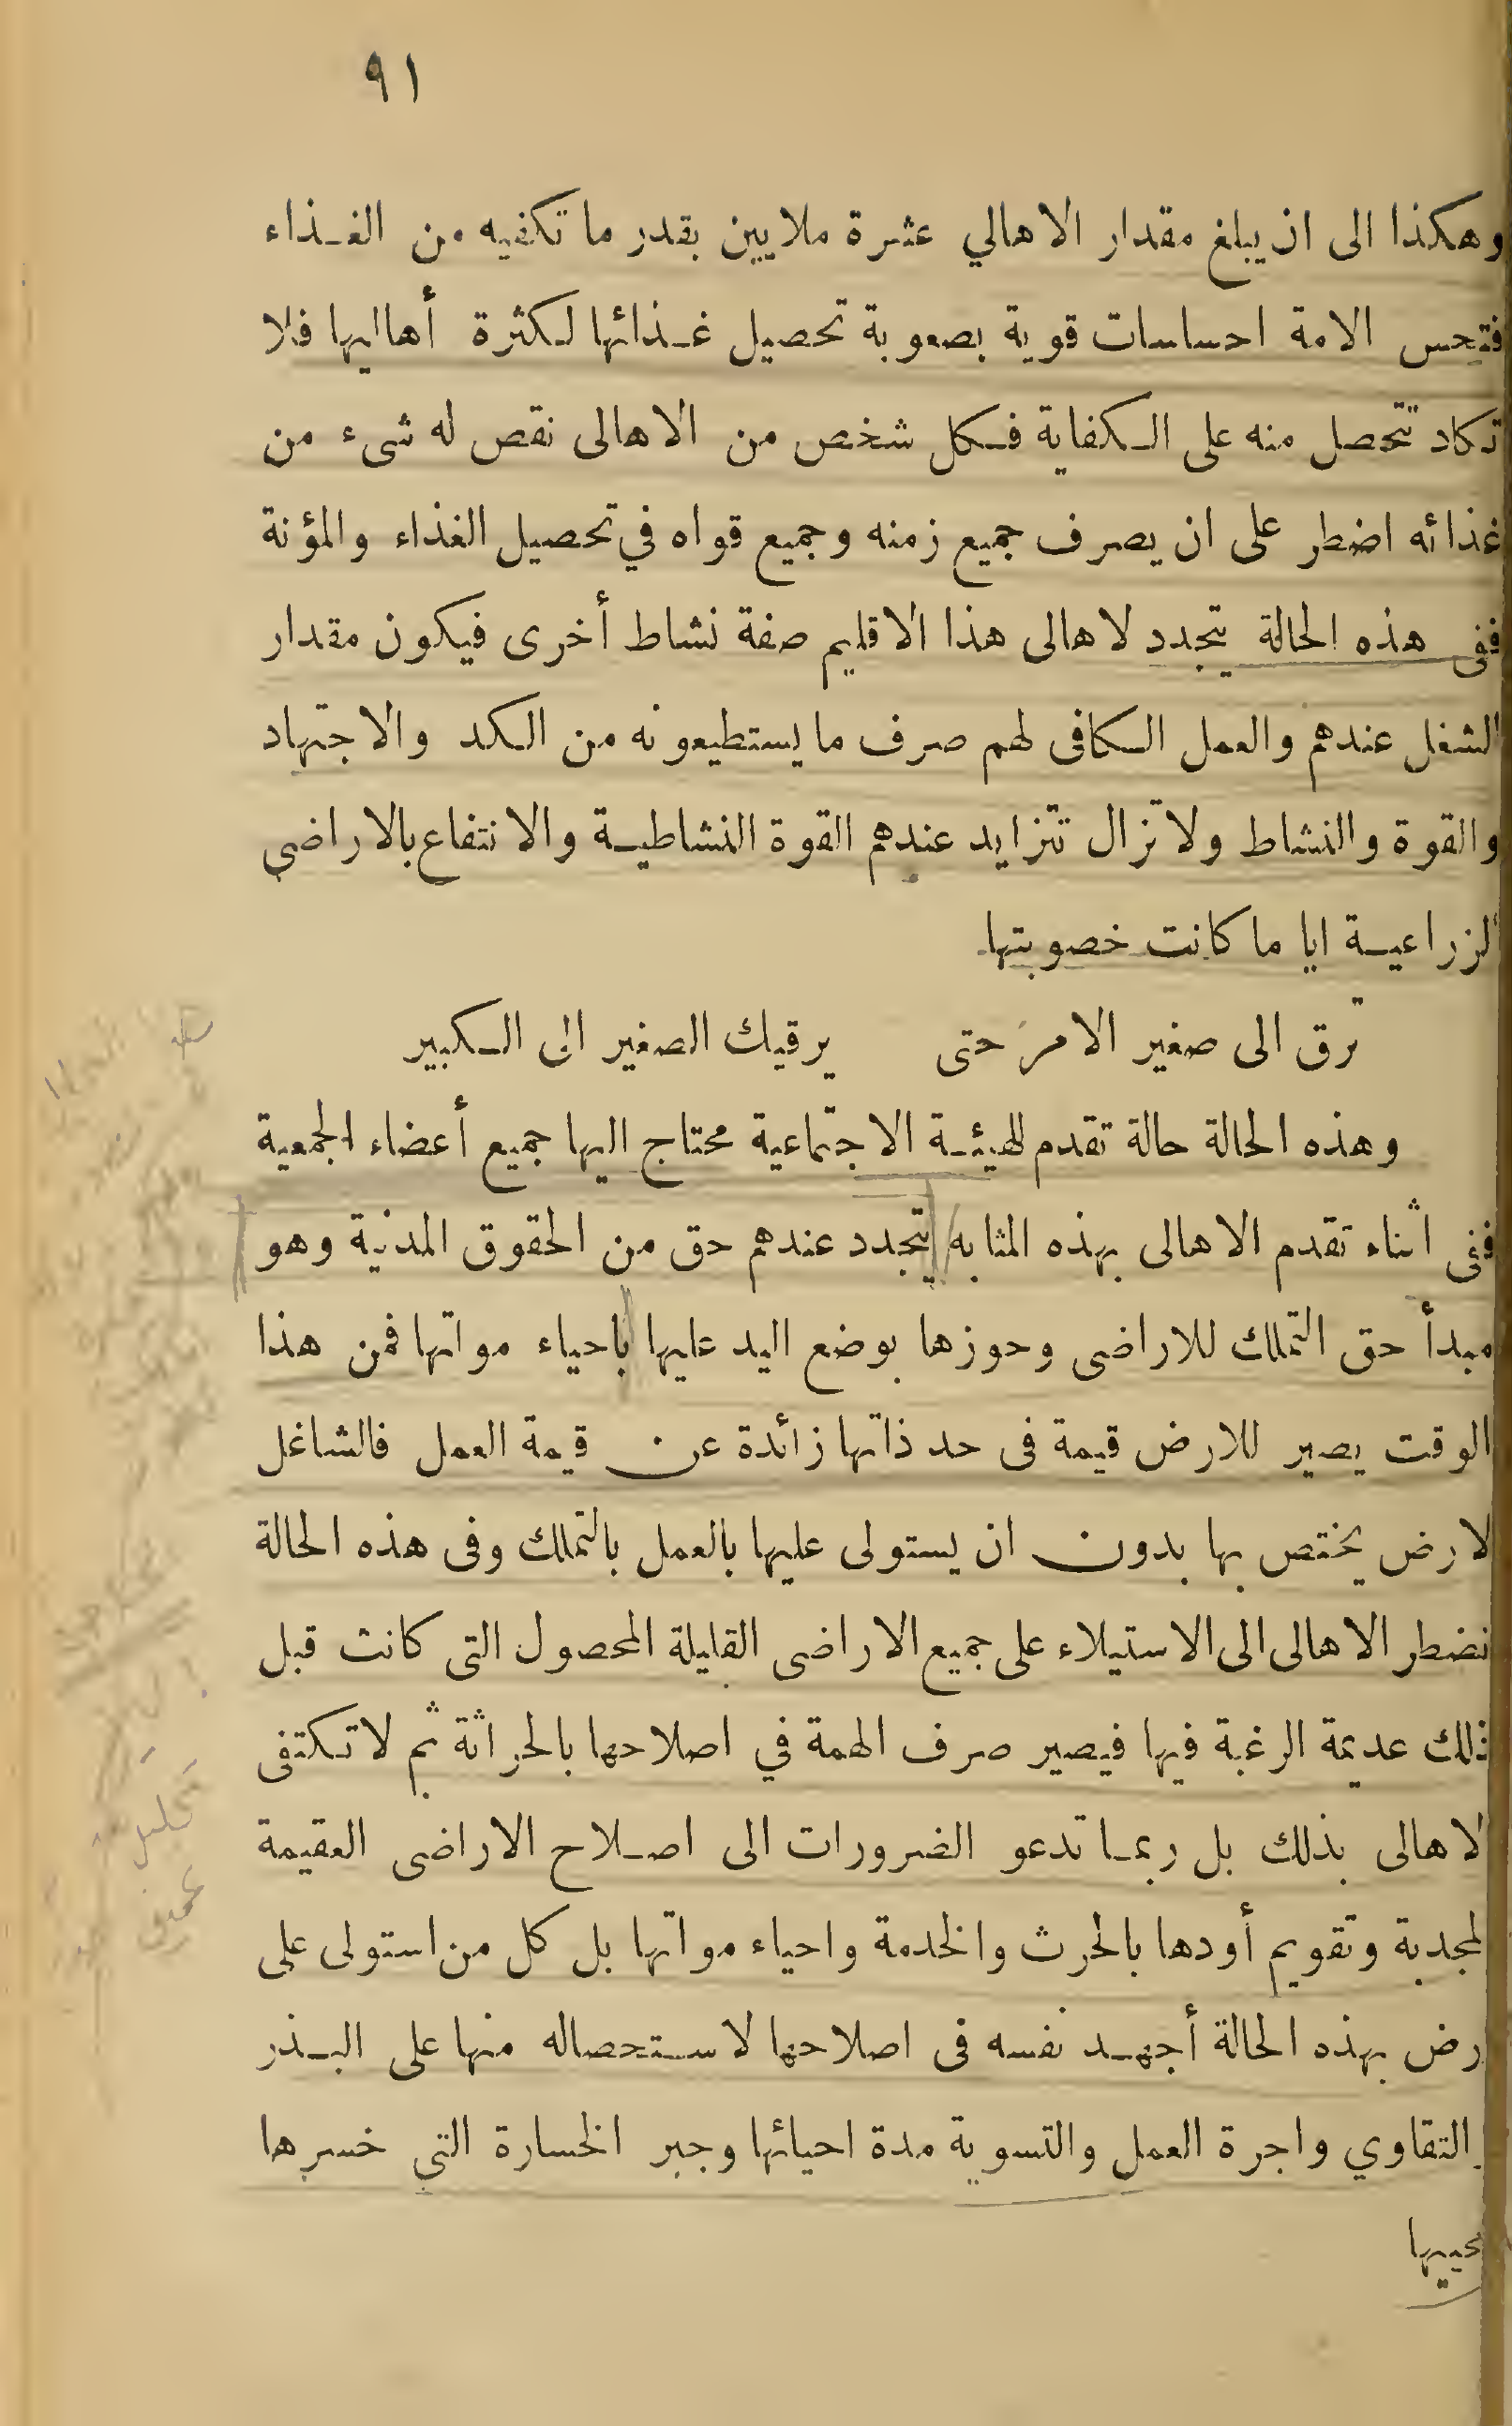 ٩١
وهكذا الى ان يبلغ مقدار الاهالي عشرة ملايين بقدر ما تكفيه من الغـذاء
فتحس الامة احساسات قوية بصعوبة تحصيل غـذائها لكثرة أهاليها فلا
تكاد تتحصل منه على الـكفاية فـكل شخص من الاهالى نقص له شىء من
غذائه اضطر على ان يصرف جميع زمنه وجميع قواه في تحصيل الغذاء والمؤنة
ففى هذه الحالة يتجدد لاهالى هذا الاقليم صفة نشاط أخرى فيكون مقدار
الشغل عندهم والعمل الـكافى لهم صرف ما يستطيعونه من الـكد والاجتهاد
والقوة والنشاط ولا تزال تتزايد عندهم القوة النشاطيـة والانتفاع بالاراضي
لزراعيـة ايا ما كانت خصوبتها
ترق الى صغير الامر حتى يرقيك الصغير الى الـكبير
وهذه الحالة حالة تقدم للهيئـة الاجتماعية محتاج اليها جميع أعضاء الجمعية
ففى اثناء تقدم الاهالى بهذه المثابه يتجدد عندهم حق من الحقوق المدنية وهو
مبدأ حق التملك للاراضى وحوزها بوضع اليد عليها باحياء مواتها فمن هذا
الوقت يصير للارض قيمة فى حد ذاتها زائدة عن قيمة العمل فالشاغل
لارض يختص بها بدون ان يستولى عليها بالعمل بالتملك وفى هذه الحالة
تضطر الاهالى الى الاستيلاء على جميع الاراضى القليلة المحصول التى كانت قبل
ذلك عديمة الرغبة فيها فيصير صرف الهمة في اصلاحها بالحراثة ثم لا تـكتفى
لاهالى بذلك بل ربمـا تدعو الضرورات الى اصـلاح الاراضى العقيمة
لمجدبة وتقويم أودها بالحرث والخدمة واحياء مواتها بل كل من استولى على
رض بهذه الحالة أجهـد نفسه فى اصلاحها لاسـتحصاله منها على البـذر
التقاوي واجرة العمل والتسوية مدة احيائها وجبر الخسارة التي خسرها
محييها
تحليل
عميق